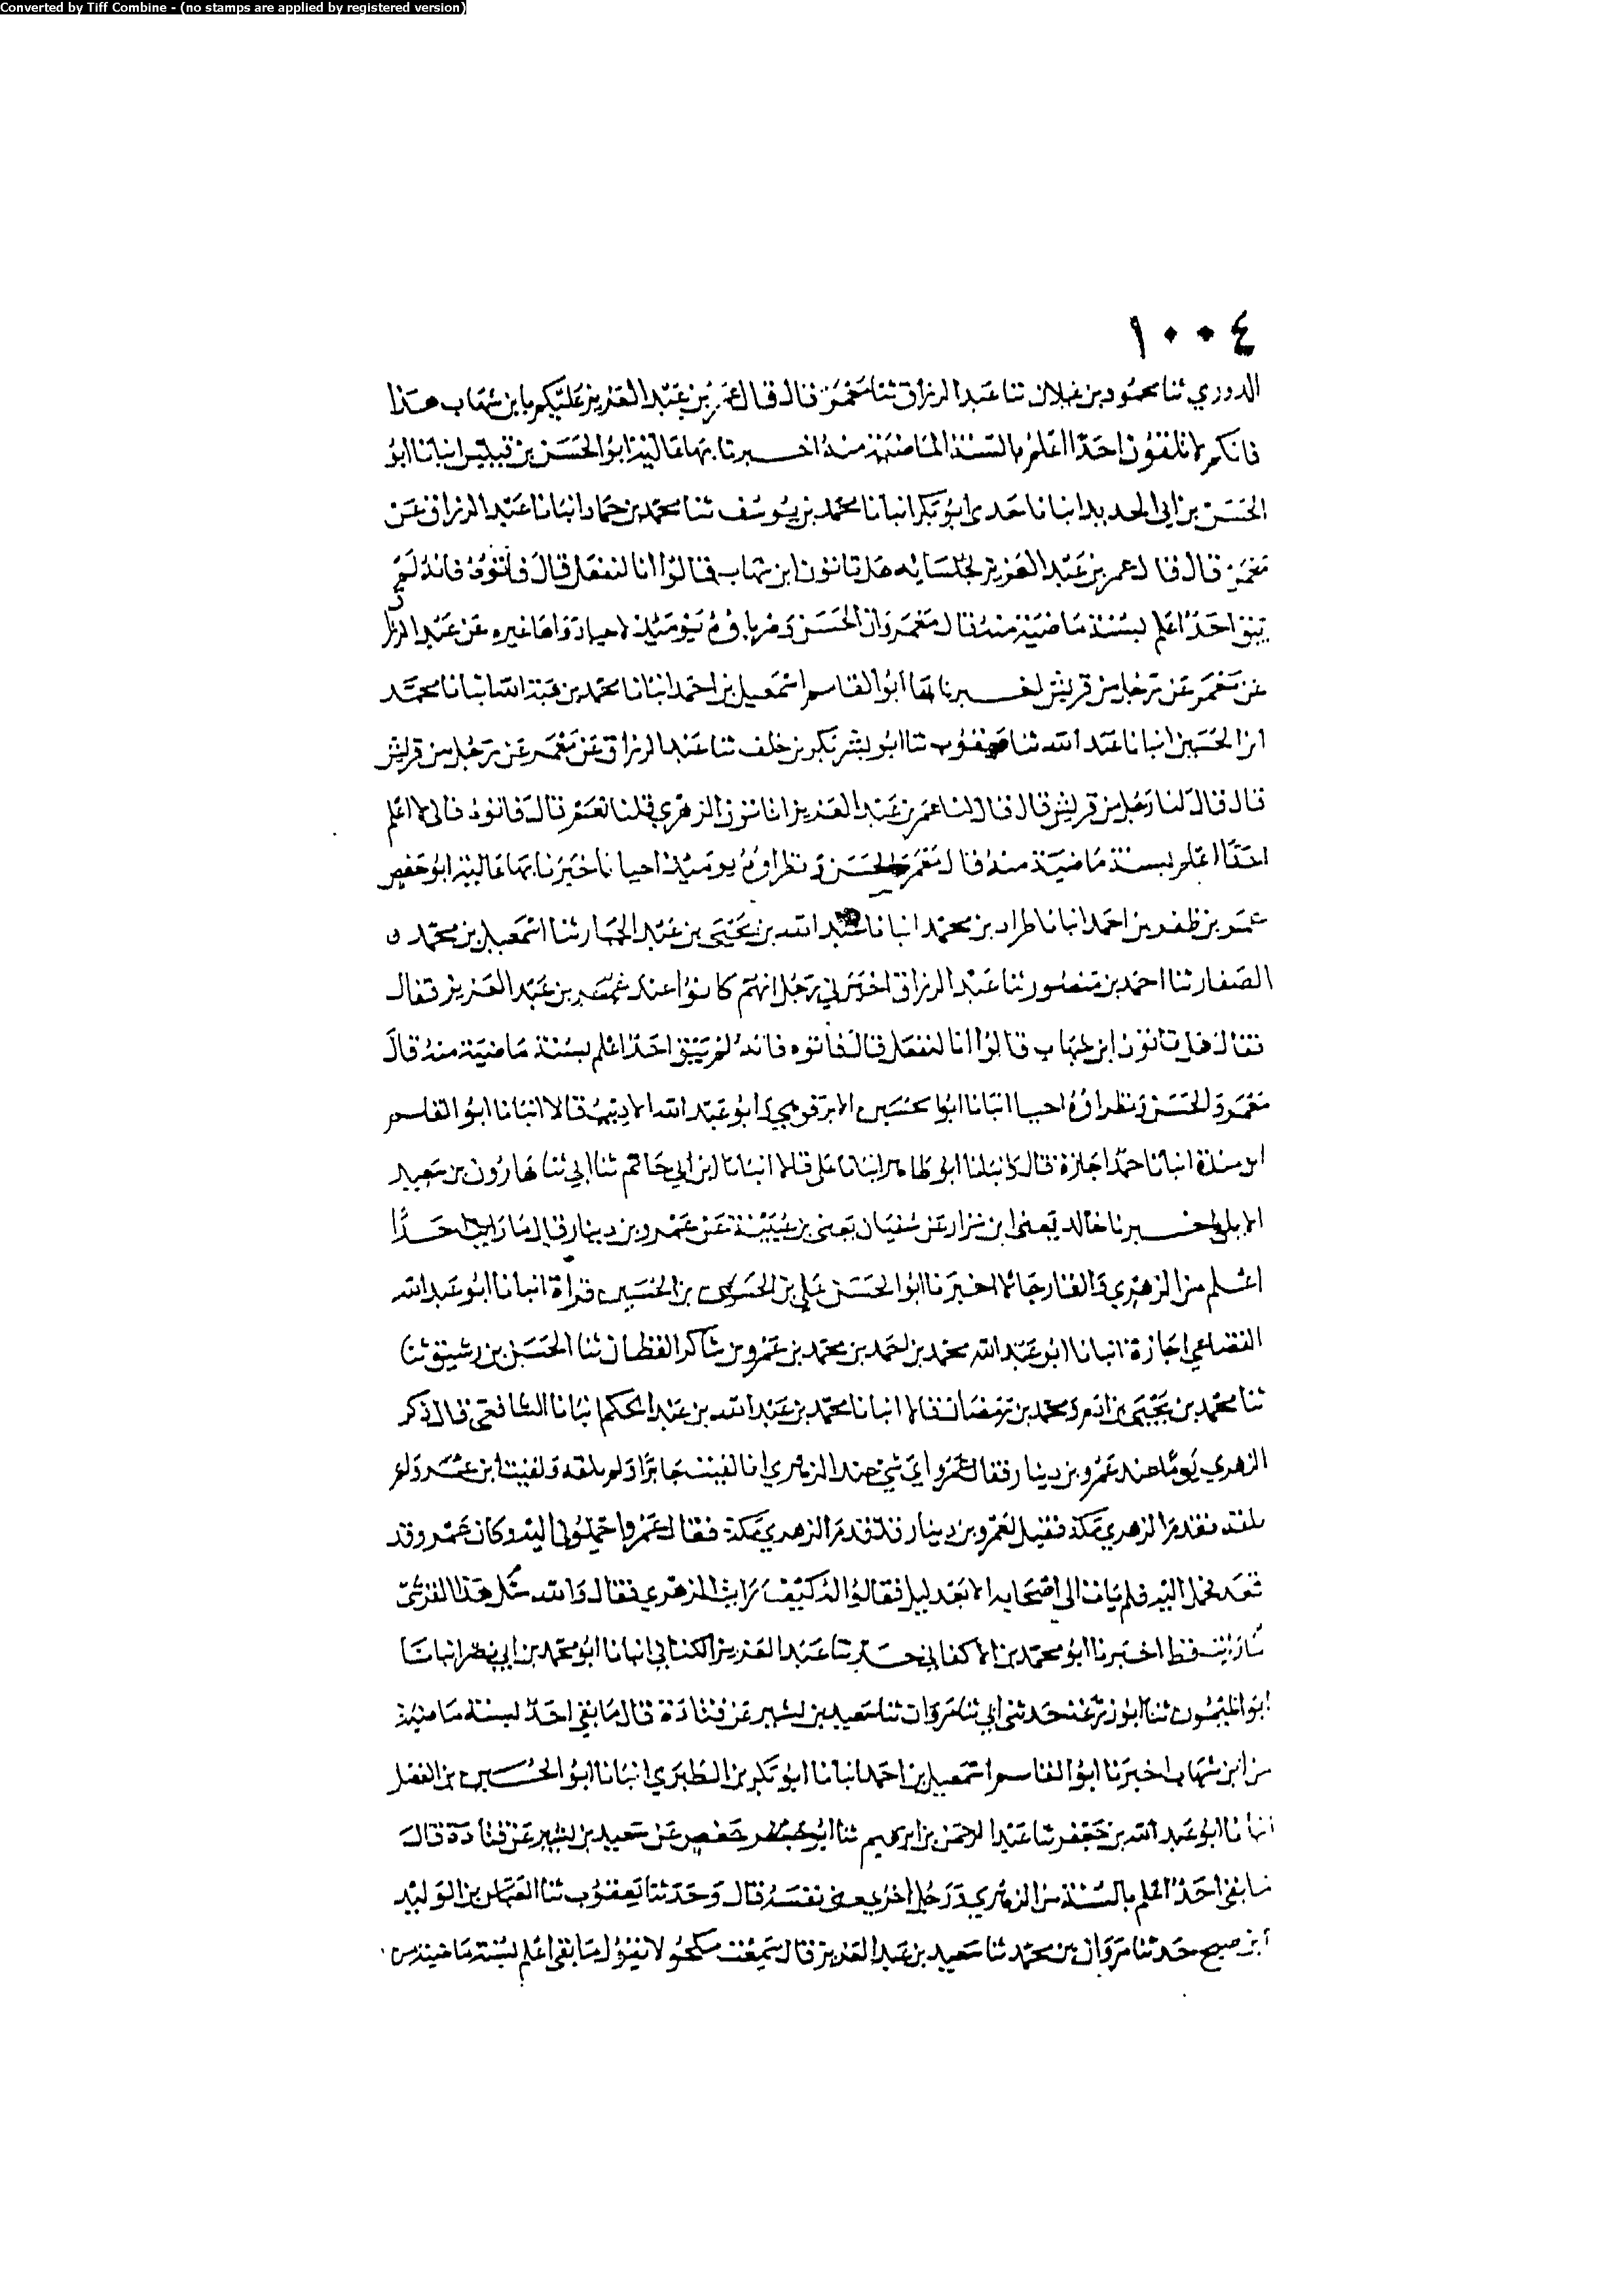 Converted by Tiff Combine - (no stamps are applied by registered version)
١٠٠٤
الدوري ثنا محمود بن غيلان ثنا عبد الرزاق ثنا معمر قال قال عمر بن عبد العزيز عليكم بابن شهاب هذا
فانكم لا تلقون احدا اعلم بالسنة الماضية منه اخبرنا بها عاليه ابو الحسن بن قبيس انبانا ابو
الحسن بن ابي الحديد انبانا جدي ابو بكر انبانا محمد بن يوسف ثنا محمد بن حماد انبانا عبد الرزاق عن
معمر قال قال عمر بن عبد العزيز لجلسايه هل تاتون ابن شهاب قالوا انا لنفعل قال فاتوه فانه لم
يبق احد اعلم بسنة ماضية منه قال معمر وان الحسن وضرباؤه يوميذ لاحيا رواها غيره عن عبد الرزاق
عن معمر عن رجل من قريش اخبرنا بها ابو القاسم اسمعيل بن احمد انبانا محمد بن هبة الله انبانا محمد
ابن الحسين انبانا عبد الله ثنا يعقوب ثنا ابو بشر بكر بن خلف ثنا عبد الرزاق عن معمر عن رجل من قريش
قال قال لنا رجل من قريش قال قال لنا عمر بن عبد العزيز اتاتون الزهري قلنا نعم قال فاتوه فاني لا اعلم
احدا اعلم بسنة ماضية منه قال معمر والحسن ونظراؤه يوميذ احيا اخبرنا بها عاليه ابو حفص
عمر بن ظفر بن احمد انبانا طراد بن محمد انبانا عبد الله بن يحيى بن عبد الجبار ثنا اسمعيل بن محمد
الصفار ثنا احمد بن منصور ثنا عبد الرزاق اخبرني رجل انهم كانوا عند عمر بن عبد العزيز فقال
فقال هل تاتون ابن شهاب قالوا انا لنفعل قال فاتوه فانه لم يبق احد اعلم بسنة ماضية منه قال
معمر والحسن ونظراؤه احيا انبانا ابو الحسين الابرقوهي وابو عبد الله الاديب قالا انبانا ابو القاسم
ابن مندة انبانا حمد اجازة قال وانبانا ابو طاهر انبانا علي قالا انبانا ابن ابي حاتم ثنا ابي ثنا هارون بن سعيد
الايلي اخبرنا خالد يعني ابن نزار عن سفيان يعني بن عيينة عن عمرو بن دينار قال ما رايت احدا
اعلم من الزهري اخبرنا ابو الحسن علي بن الحسن بن الحسين قراة انبانا ابو عبد الله
القضاعي اجازة انبانا ابو عبد الله محمد بن احمد بن محمد بن عمرو بن شاكر القطان ثنا الحسن بن رشيق ثنا
ثنا محمد بن يحيى بن ادم ومحمد بن رمضان قالا انبانا محمد بن عبد الله بن عبد الحكم انبانا الشافعي قال ذكر
الزهري يوما عند عمرو بن دينار فقال عمرو اي شي عند الزهري انا لقيت جابرا ولم يلقه ولقيت ابن عمر ولم
يلقه فقدم الزهري مكة فقيل لعمرو بن دينار قد قدم الزهري مكة فقال عمرو احملوني اليه وكان عمرو قد
قعد فحمل اليه فلم يات الى اصحابه الا بعد ليل فقالوا له كيف رايت الزهري فقال والله مثل هذا القرشي
ما رايت قط اخبرنا ابو محمد بن الاكفاني ثنا عبد العزيز الكتاني انبانا ابو محمد بن ابي نصر انبانا
ابو الميمون ثنا ابو زرعة حدثني ابي ثنا مروان ثنا سعيد بن بشير عن قتادة قال ما بقي احد لسنة ماضية
من ابن شهاب اخبرنا ابو القاسم اسمعيل بن احمد انبانا ابو بكر بن الطبري انبانا ابو الحسين بن الفضل
انبانا ابو عبد الله بن جعفر ثنا عبد الرحمن بن ابرهيم ثنا ابو حفص عن سعيد بن بشير عن قتادة قال
ما بقي احد اعلم بالسنة من الزهري ورجل اخر يعني نفسه قال وحدثنا يعقوب ثنا العباس بن الوليد
ابن صبح حدثنا مروان بن محمد ثنا سعيد بن عبد العزيز قال سمعت مكحولا يقول ما بقي اعلم بسنة ماضية من